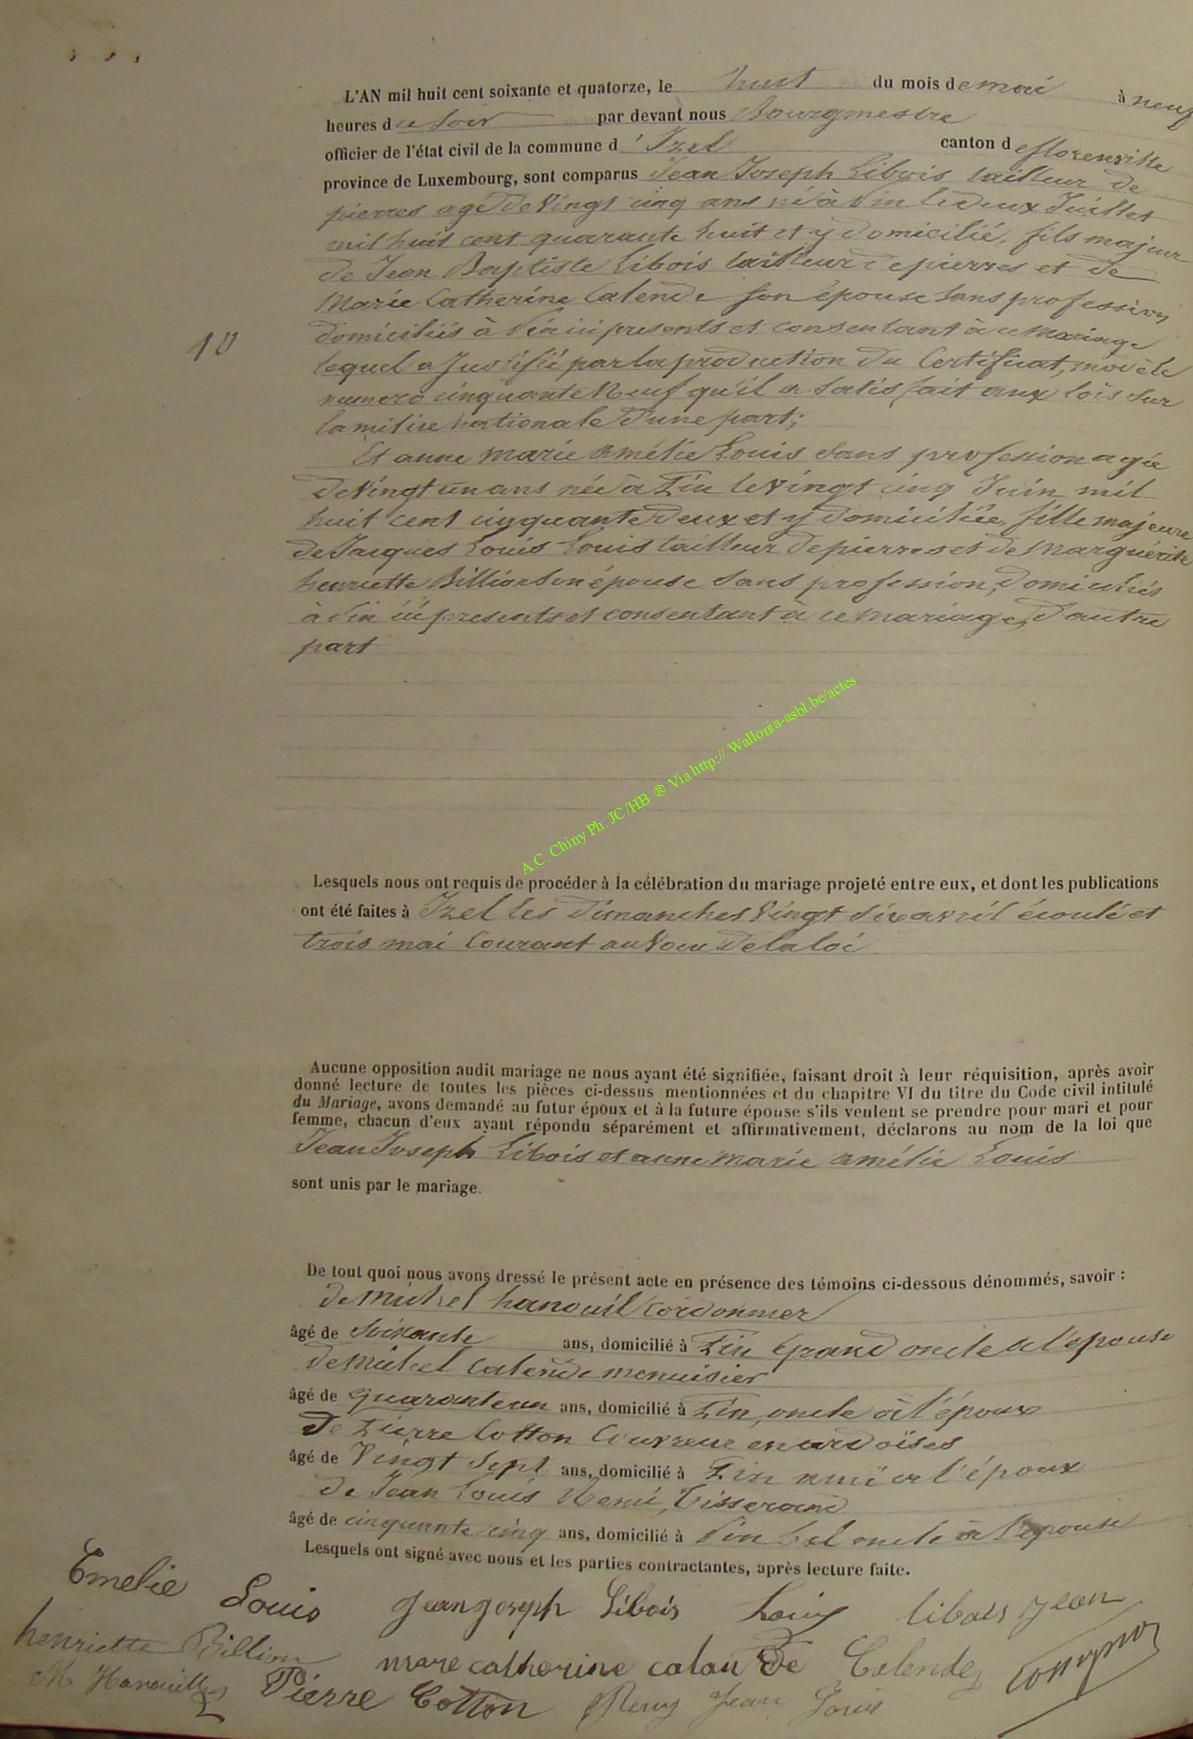 L'AN mil huit cent soixante et quatorze, le huit du mois de mai à neuf
heures du soir par devant nous Bourgmestre
officier de l'état civil de la commune d'Izel canton de florenville
province de Luxembourg, sont comparus Jean Joseph Libois tailleur de
pierres agé de Vingt cinq ans né à Pin le deux Juillet
mil huit cent quarante huit et y domicilié, fils majeur
de Jean Baptiste Libois tailleur de pierres et de
Marie Catherine Calende son épouse sans profession
domiciliés à Pin ici presents et consentant à ce mariage
10
lequel a Justifié par la production du Certificat, modèle
numero cinquante Neuf qu'il a satisfait aux lois sur
la milice nationale d'une part;
Et anne marie amélie Louis sans profession agée
de Vingt un ans née à Pin le Vingt cinq Juin mil
huit cent cinquante deux et y domiciliée, fille majeure
de Jacques Louis Louis tailleur de pierres et de Marguérite
henriette Billion son épouse sans profession, domiciliés
à Pin ici presents et consentant à ce mariage, d'autre
part
A.C. Chiny Ph. JC/HB ® Via http:// Wallonia-asbl.be/actes
Lesquels nous ont requis de procéder à la célébration du mariage projeté entre eux, et dont les publications
ont été faites à Izel les dimanches Vingt six avril écoulé et
trois mai Courant au Voeu de la loi
Aucune opposition audit mariage ne nous ayant été signifiée, faisant droit à leur réquisition, après avoir
donné lecture de toutes les pièces ci-dessus mentionnées et du chapitre VI du titre du Code civil intitulé
du Mariage, avons demandé au futur époux et à la future épouse s'ils veulent se prendre pour mari et pour
femme, chacun d'eux ayant répondu séparément et affirmativement, déclarons au nom de la loi que
Jean Joseph Libois et anne marie amélie Louis
sont unis par le mariage.
De tout quoi nous avons dressé le présent acte en présence des témoins ci-dessous dénommés, savoir :
de Michel hanouil Cordonnier
âgé de Soixante ans, domicilié à Pin Grand oncle à l'épouse
de Michel Calende menuisier
âgé de quarante un ans, domicilié à Pin, oncle à l'époux
de Pierre Cotton Couvreur en ardoises
âgé de Vingt Sept ans, domicilié à Pin ami à l'époux
de Jean Louis Remi, Tisserand
âgé de cinquante cinq ans, domicilié à Pin bel oncle à l'épouse
Lesquels ont signé avec nous et les parties contractantes, après lecture faite.
Emelie Louis Jean joseph Libois Louis libois jean
henriette Billion mare catherine calan de Calende
M Hanouille Pierre Cotton Remy Jean Louis